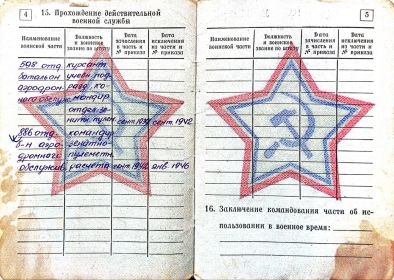 4
15. Прохождение действительной
военной службы
Наименование воинской части
Должность и воинское звание по штату
Дата зачисления в часть и № приказа
Дата исключения из части и № приказа
598 отд. курсант
батальон учебн. под-
аэродром- разд. ко-
ного обслуж. мандир
отдел. зе-
нитн. пулем. сент. 1942
886 отд. командир
б-н аэро- зенитно-
дромного пулеметн.
обслужив. расчета сент. 1942 янв. 1946
5
Наименование воинской части
Должность и воинское звание по штату
Дата зачисления в часть и № приказа
Дата исключения из части и № приказа
16. Заключение командования части об ис-
пользовании в военное время: